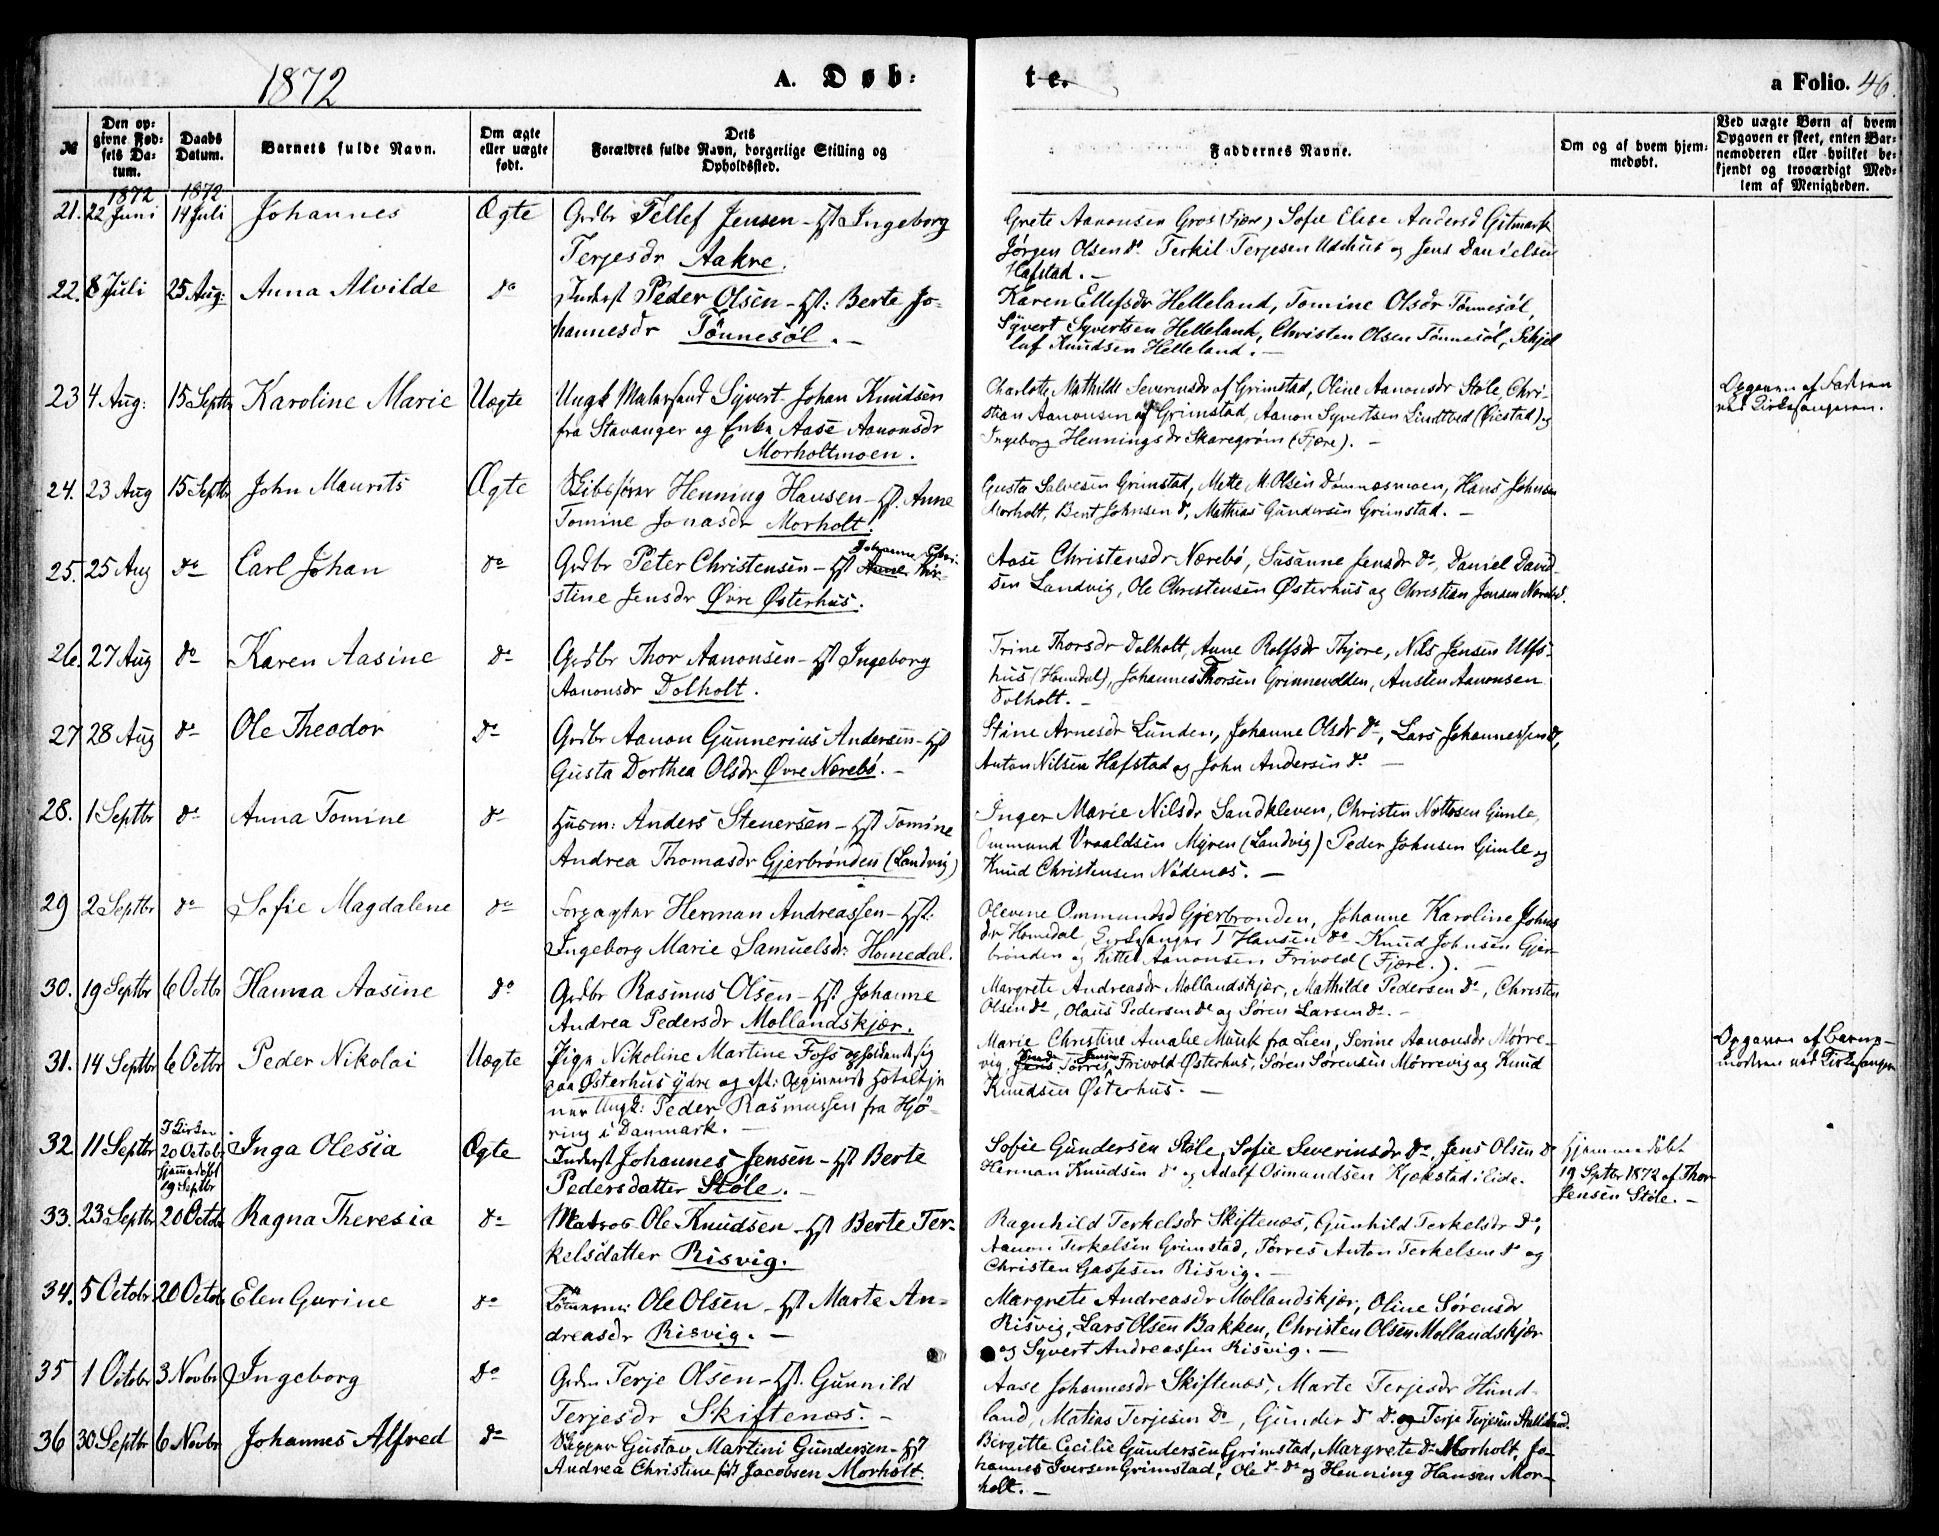 1872
A. Døb-
te.
a Folio. 46.
№
Den op-
givne Fød-
sels Da-
tum.
Daabs
Datum.
Barnets fulde Navn.
Om ægte
eller uægte
født.
Dets
Forældres fulde Navn, borgerlige Stilling og
Opholdssted.
Faddernes Navne.
Om og af hvem hjem-
medøbt.
Ved uægte Børn af hvem
Opgaven er skeet, enten Bar-
nemoderen eller hvilket be-
kjendt og troværdigt Med-
lem af Menigheden.
1872 1872
21. 22 Juni 14 Juli Johannes Ægte Grdbr Tellef Jensen – Hst Ingeborg
Terjesdr Aakre.
Grete Aanonsen Gros (Fjære) Sofie Elise Andersd Gitmark
Jørgen Olsen do Terkil Terjesen Udehus og Jens Danielsen
Hafstad. –
22. 8 Juli 25 Aug: Anna Alvilde do Inderst Peder Olsen – Hst: Berte Jo-
hannesdr Tönnesöl. –
Karen Ellefsdr Helleland, Tomine Olsdr Tönnesöl,
Syvert Syvertsen Helleland, Christen Olsen Tönnesöl, Schjel
luf Knudsen Helleland. –
23 4 Aug: 15 Septbr Karoline Marie Uægte Ungk Malersvend Syvert Johan Knudsen
fra Stavanger og Enke Aase Aanonsdr
Morholtmoen.
Charlotte Mathilde Severinsdr af Grimstad, Oline Aanonsdr Støle, Chri-
stian Aanonsen af Grimstad, Aanon Syvertsen Lindtved (Øiestad) og
Ingeborg Henningsdr Skaregrøm (Fjære). –
Opgaven af Faderen
ved Kirkesangeren.
24. 23 Aug 15 Septbr John Maurits Ægte Skibsfører Henning Hansen – Hst. Anne
Tomine Jonasdr Morholt.
Gusta Salvesen Grimstad, Mette M. Olsen Dømnesmoen, Hans Johnsen
Morholt, Bent Johnsen do, Mathias Gundersen Grimstad. –
25. 25 Aug do Carl Johan do Grdbr Peter Christensen – Hst Anne Johanne Chri-
stine Jensdr Øvre Østerhus.
Aase Christensdr Nærebö, Susanne Jensdr do, Daniel David-
sen Landvig, Ole Christensen Østerhus og Christian Jensen Nærebö.
26. 27 Aug do Karen Aasine do Grdbr Thor Aanonsen – Hst Ingeborg
Aanonsdr Dolholt.
Trine Thorsdr Dolholt, Anne Rolfsdr Thjore, Nils Jensen Ulfs-
hus (Homedal), Johannes Thorsen Grinnevolden, Austen Aanonsen
Dolholt. –
27 28 Aug do Ole Theodor do Grdbr Aanon Gunnerius Andersen – Hst
Gusta Dorthea Olsdr Øvre Nærebö. –
Stine Arnesdr Lunden, Johanne Olsdr do, Lars Johannessen do,
Anton Nilsen Hafstad og John Andersen do –
28. 1 Septbr do Anna Tomine do Husm: Anders Stenersen – Hst Tomine
Andrea Thomasdr Gjerbrönden (Landvig)
Inger Marie Nilsdr Sandkleven, Christen Nottosen Gimle,
Ommund Vraaldsen Myren (Landvig) Peder Johnsen Gimle og
Knud Christensen Nödenæs. –
29 2 Septbr do Sofie Magdalene do Forpagter Herman Andreassen – Hst:
Ingeborg Marie Samuelsdr: Homedal.
Olevine Ommundsd Gjerbronden, Johanne Karoline Johns
dr Homedal, Kirkesanger T Hansen do Knud Johnsen Gjer-
brönden og Kittel Aanonsen Frivold (Fjære.). –
30. 19 Septbr 6 Octbr Hanna Aasine do Grdbr Rasmus Olsen – Hst. Johanne
Andrea Pedersdr Mollandskjær.
Margrete Andreasdr Mollandskjær, Mathilde Pedersen do, Christen
Olsen do, Olaus Pedersen do og Søren Larsen do. –
31. 14 Septbr 6 Octbr Peder Nikolai Uægte Pige Nikoline Martine Foss opholdende sig
paa Østerhus ydre og efter Opgivende Hotelltje
ner Ungk: Peder Rasmussen fra Hjö-
ring i Danmark. –
Marie Christine Amalie Munk fra Lien, Serine Aanonsdr Mörre-
vig, Jens Törres Frivold Østerhus, Sören Sörensen Mörrevig og Knud
Knudsen Østerhus. –
Opgaven af Barne-
moderen ved Kirkesangeren
32. 11 Septbr I Kirken
20 Octobr
Hjemmedöbt
19 Septbr
Inga Olesia Ægte Inderst Johannes Jensen – Hst Berte
Pedersdatter Støle. –
Sofie Gundersen Støle, Sofie Severinsdr do, Jens Olsen do
Herman Knudsen do og Adolf Osmundsen Kjokstad i Eide.
Hjemmedöbt
19 Septbr 1872 af Thor
Jensen Støle. –
33. 23 Septbr 20 Octobr Ragna Theresia do Matros Ole Knudsen – Hst Berte Ter-
kelsdatter Risvig.
Ragnhild Terkelsdr Skiftenæs, Gunhild Terkelsdr do,
Aanon Terkelsen Grimstad, Törres Anton Terkelsen do og
Christen Gassesen Risvig. –
34. 5 Octobr 20 Octobr Elen Gurine do Tömmerm: Ole Olsen – Hst Marte An-
dreasdr Risvig. –
Margrete Andreasdr Mollandskjær, Oline Sörensdr
Risvig, Lars Olsen Bakken, Christen Olsen Mollandskjær
og Syvert Andreassen Risvig. –
35 1 Octobr 3 Novbr Ingeborg do Grdm Terje Olsen – Hst. Gunnild
Terjesdr Skiftenæs. –
Aase Johannesdr Skiftenæs, Marte Terjesdr Hund-
land, Matias Terjesen do, Gunder T do og Terje Terjesen
36 30 Septbr 6 Novbr Johannes Alfred do Skipper Gustav Martini Gundersen – Hst
Andrea Christine født Jacobsen Morholt.
Bergitte Cecilie Gundersen Grimstad, Margrete do Morholt, Jo-
hannes Iversen Grimstad, Ole do do og Henning Hansen Mor-
holt. –